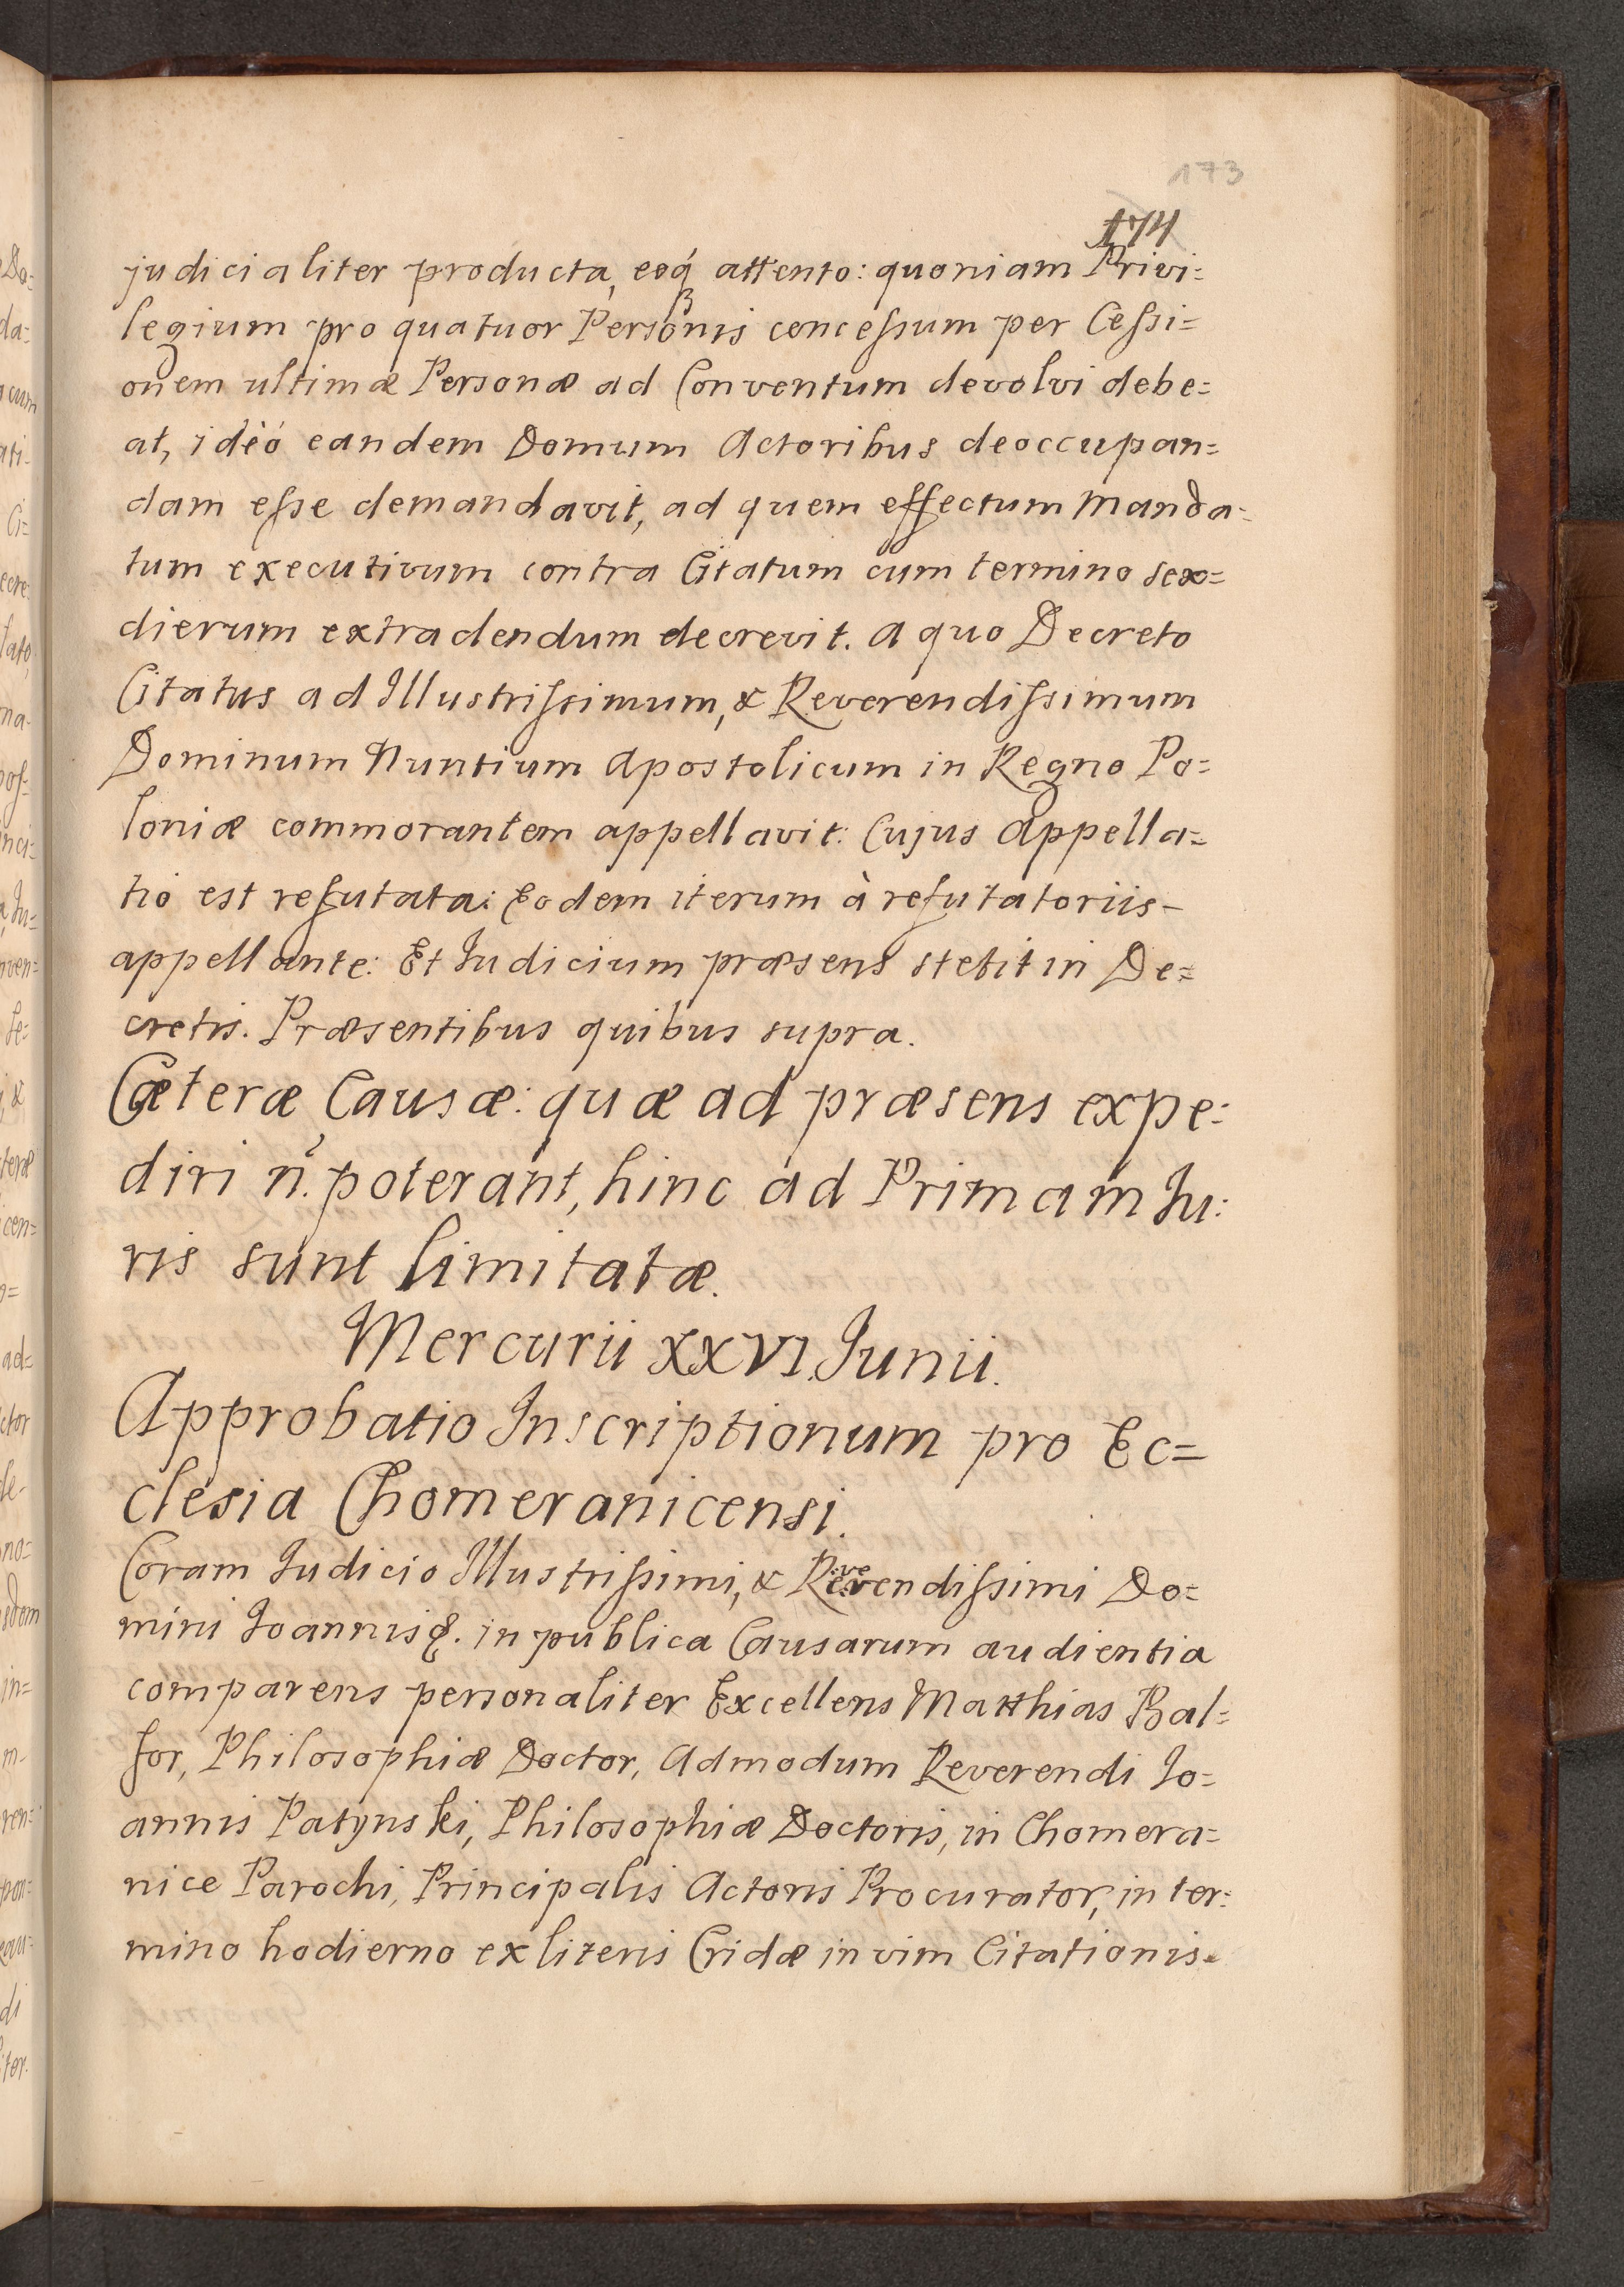 173
174
judicialiter producta, eoq́ attento: quoniam Privi=
legium pro quatuor Personis concessum per Cessi=
onem ultimæ Personæ ad Conventum devolvi debe=
at, ideò eandem Domum Actoribus deoccupan=
dam esse demandavit, ad quem effectum Manda=
tum executivum contra Citatum cum termino sex=
dierum extradendum decrevit. A quo Decreto
Citatus ad Illustrissimum, & Reverendissimum
Dominum Nuntium Apostolicum in Regno Po=
loniæ commorantem appellavit: Cujus Appella=
tio est refutata: Eodem iterum à refutatoriis-
appellante: Et Iudicium præsens stetit in De=
cretis. Præsentibus quibus supra.
Cæteræ Causæ: quæ ad præsens expe:
diri n̄. poterant, hinc ad Primam Iu:
ris sunt limitatæ.
Mercurii XXVI. Junii.
Approbatio Inscriptionum pro Ec=
clesia Chomeranicensi.
Coram Iudicio Illustrissimi, & Reverendissimi Do=
mini Ioannis &. in publica Causarum audientia
comparens personaliter Excellens Matthias Bal=
for, Philosophiæ Doctor, Admodum Reverendi Io=
annis Patynski, Philosophiæ Doctoris, in Chomera=
nice Parochi, Principalis Actoris Procurator, in ter:
mino hodierno ex literis Cridæ in vim Citationis-